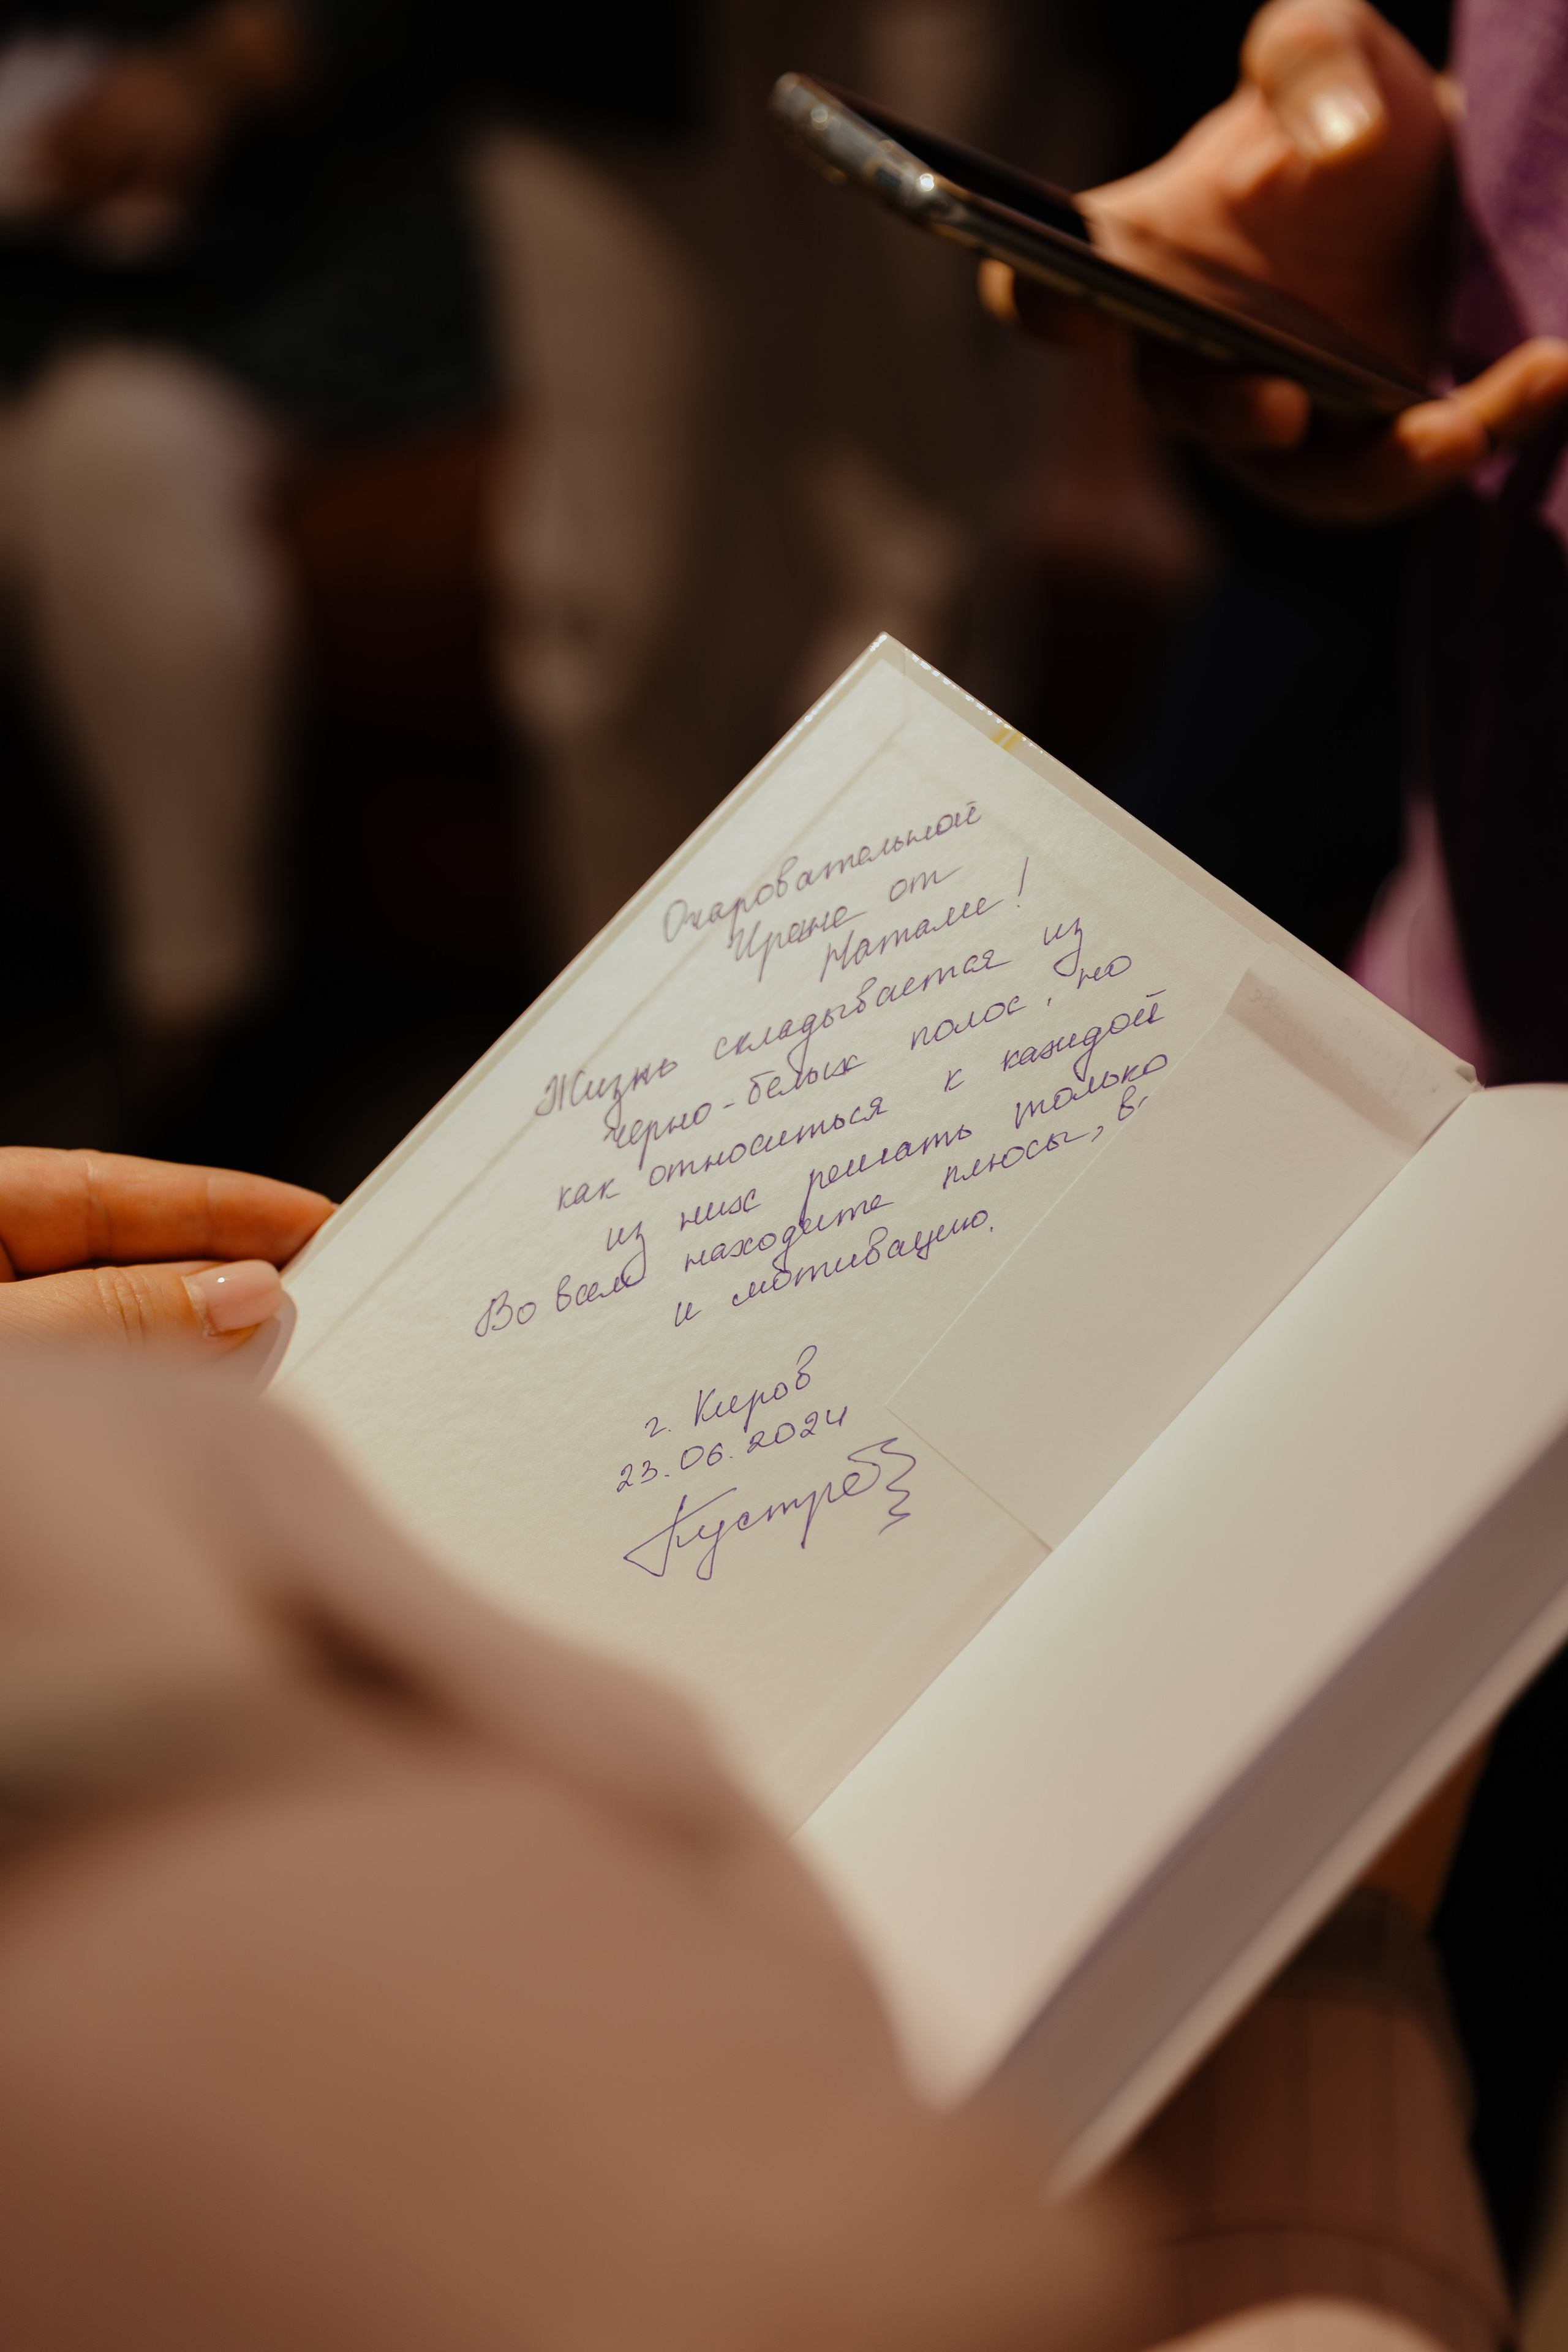 Очаровательной
Ирэне от
Натали!
Жизнь складывается из
черно-белых полос, но
как относиться к каждой
из них решать только
Во всем находите плюсы, в.
и мотивацию.
г. Киров
23.06.2024